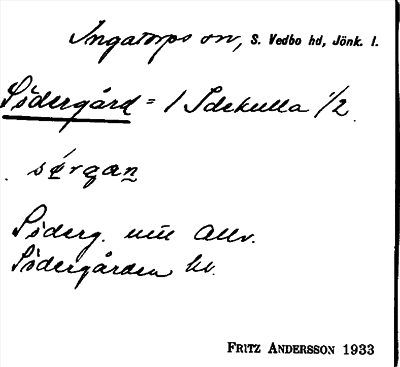 Ingatorps sn, S. Vedbo hd, Jönk. l.
Södergård = 1 Idekulla 1/2
sǿrgan̲
Söderg. uu Allv.
Södergården kl.
FRITZ ANDERSSON 1933